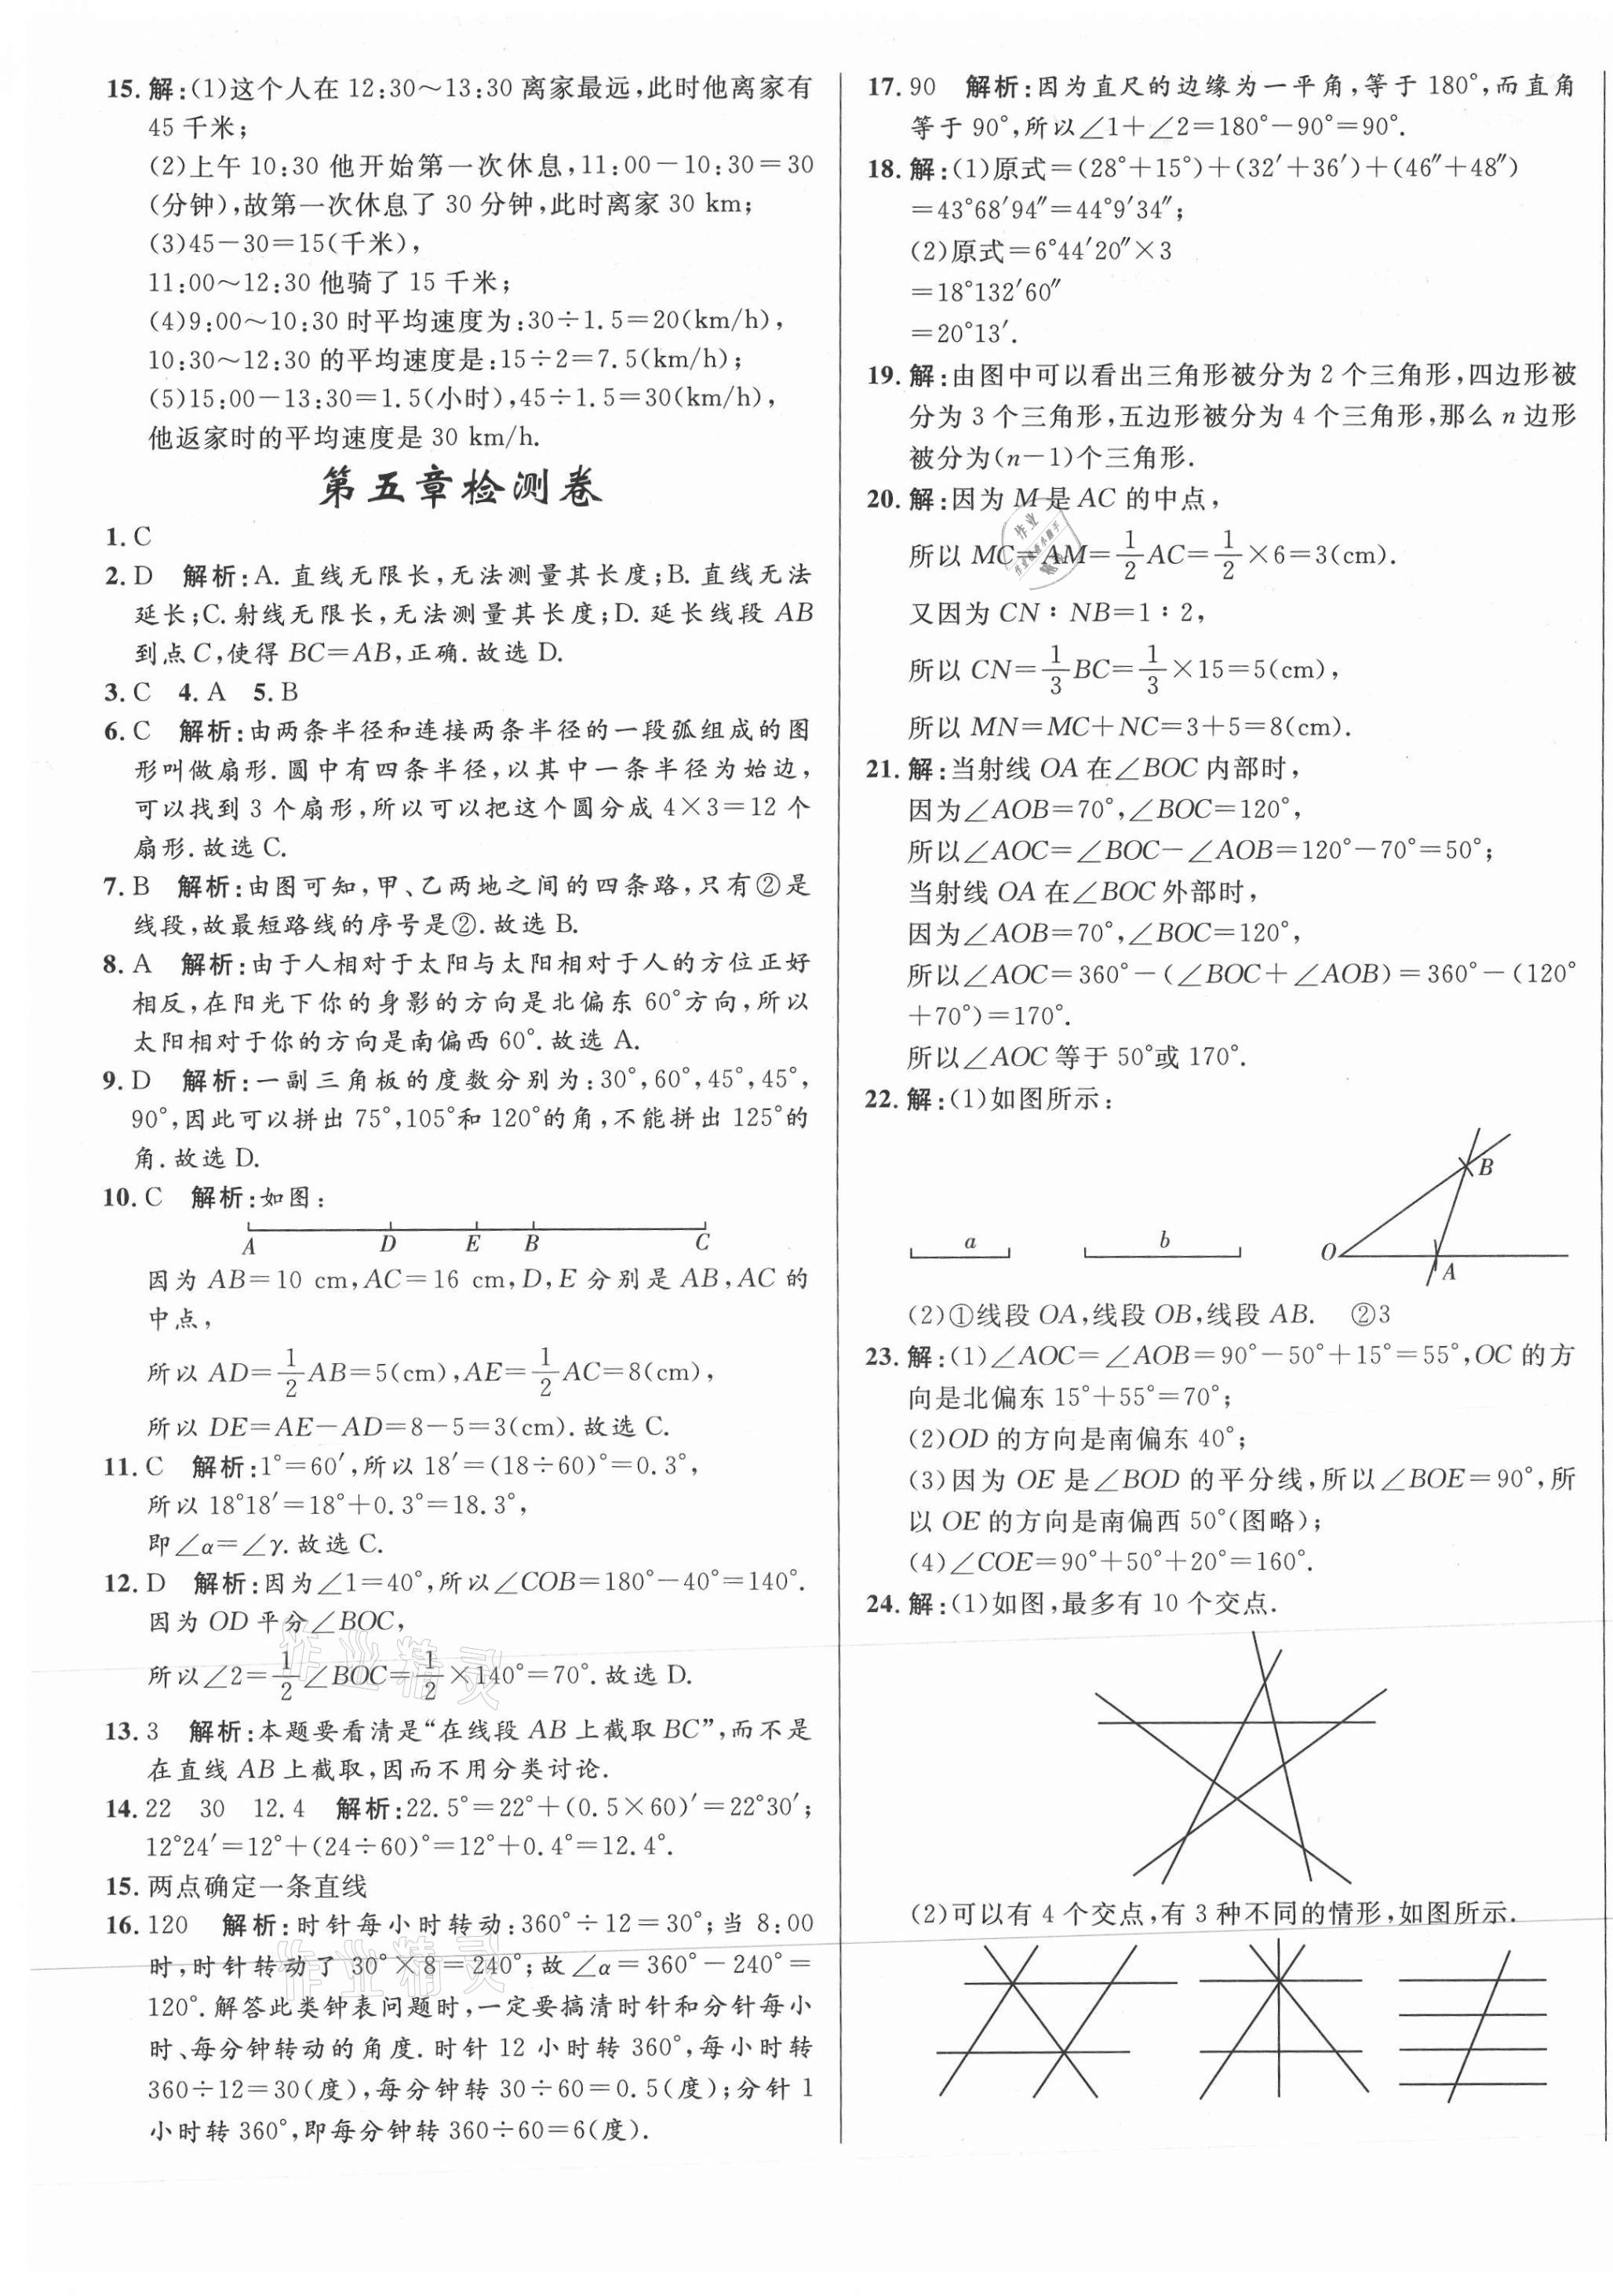 15. 解:(1)这个人在 12:30～13:30 离家最远,此时他离家有
45 千米;
(2)上午 10:30 他开始第一次休息,11:00－10:30＝30
(分钟),故第一次休息了 30 分钟,此时离家 30 km;
(3)45－30＝15(千米),
11:00～12:30 他骑了 15 千米;
(4)9:00～10:30 时平均速度为:30÷1.5＝20(km/h),
10:30～12:30 的平均速度是:15÷2＝7.5(km/h);
(5)15:00－13:30＝1.5(小时),45÷1.5＝30(km/h),
他返家时的平均速度是 30 km/h.
第五章检测卷
1. C
2. D 解析:A. 直线无限长,无法测量其长度;B. 直线无法
延长;C. 射线无限长,无法测量其长度;D. 延长线段 AB
到点 C,使得 BC＝AB,正确. 故选 D.
3. C 4. A 5. B
6. C 解析:由两条半径和连接两条半径的一段弧组成的图
形叫做扇形. 圆中有四条半径,以其中一条半径为始边,
可以找到 3 个扇形,所以可以把这个圆分成 4×3＝12 个
扇形. 故选 C.
7. B 解析:由图可知,甲、乙两地之间的四条路,只有②是
线段,故最短路线的序号是②. 故选 B.
8. A 解析:由于人相对于太阳与太阳相对于人的方位正好
相反,在阳光下你的身影的方向是北偏东 60°方向,所以
太阳相对于你的方向是南偏西 60°. 故选 A.
9. D 解析:一副三角板的度数分别为:30°,60°,45°,45°,
90°,因此可以拼出 75°,105°和 120°的角,不能拼出 125°的
角. 故选 D.
10. C 解析:如图:
A D E B C
因为 AB＝10 cm,AC＝16 cm,D,E 分别是 AB,AC 的
中点,
所以 AD＝1/2AB＝5(cm),AE＝1/2AC＝8(cm),
所以 DE＝AE－AD＝8－5＝3(cm). 故选 C.
11. C 解析:1°＝60′,所以 18′＝(18÷60)°＝0.3°,
所以 18°18′＝18°＋0.3°＝18.3°,
即∠α＝∠γ. 故选 C.
12. D 解析:因为∠1＝40°,所以∠COB＝180°－40°＝140°.
因为 OD 平分∠BOC,
所以∠2＝1/2∠BOC＝1/2×140°＝70°. 故选 D.
13. 3 解析:本题要看清是“在线段 AB 上截取 BC”,而不是
在直线 AB 上截取,因而不用分类讨论.
14. 22 30 12.4 解析:22.5°＝22°＋(0.5×60)′＝22°30′;
12°24′＝12°＋(24÷60)°＝12°＋0.4°＝12.4°.
15. 两点确定一条直线
16. 120 解析:时针每小时转动:360°÷12＝30°;当 8:00
时,时针转动了 30°×8＝240°;故∠α＝360°－240°＝
120°. 解答此类钟表问题时,一定要搞清时针和分针每小
时、每分钟转动的角度. 时针 12 小时转 360°,每小时转
360÷12＝30(度),每分钟转 30÷60＝0.5(度);分针 1
小时转 360°,即每分钟转 360÷60＝6(度).
17. 90 解析:因为直尺的边缘为一平角,等于 180°,而直角
等于 90°,所以∠1＋∠2＝180°－90°＝90°.
18. 解:(1)原式＝(28°＋15°)＋(32′＋36′)＋(46″＋48″)
＝43°68′94″＝44°9′34″;
(2)原式＝6°44′20″×3
＝18°132′60″
＝20°13′.
19. 解:由图中可以看出三角形被分为 2 个三角形,四边形被
分为 3 个三角形,五边形被分为 4 个三角形,那么 n 边形
被分为(n－1)个三角形.
20. 解:因为 M 是 AC 的中点,
所以 MC＝AM＝1/2AC＝1/2×6＝3(cm).
又因为 CN∶NB＝1∶2,
所以 CN＝1/3BC＝1/3×15＝5(cm),
所以 MN＝MC＋NC＝3＋5＝8(cm).
21. 解:当射线 OA 在∠BOC 内部时,
因为∠AOB＝70°,∠BOC＝120°,
所以∠AOC＝∠BOC－∠AOB＝120°－70°＝50°;
当射线 OA 在∠BOC 外部时,
因为∠AOB＝70°,∠BOC＝120°,
所以∠AOC＝360°－(∠BOC＋∠AOB)＝360°－(120°
＋70°)＝170°.
所以∠AOC 等于 50°或 170°.
22. 解:(1)如图所示:
a b O A B
(2)①线段 OA,线段 OB,线段 AB. ②3
23. 解:(1)∠AOC＝∠AOB＝90°－50°＋15°＝55°,OC 的方
向是北偏东 15°＋55°＝70°;
(2)OD 的方向是南偏东 40°;
(3)因为 OE 是∠BOD 的平分线,所以∠BOE＝90°,所
以 OE 的方向是南偏西 50°(图略);
(4)∠COE＝90°＋50°＋20°＝160°.
24. 解:(1)如图,最多有 10 个交点.
(2)可以有 4 个交点,有 3 种不同的情形,如图所示.
作业精灵
作业精灵